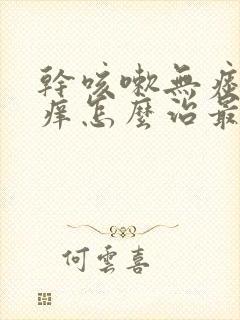 幹咳嗽無痰
痒怎麼治最
何雲喜